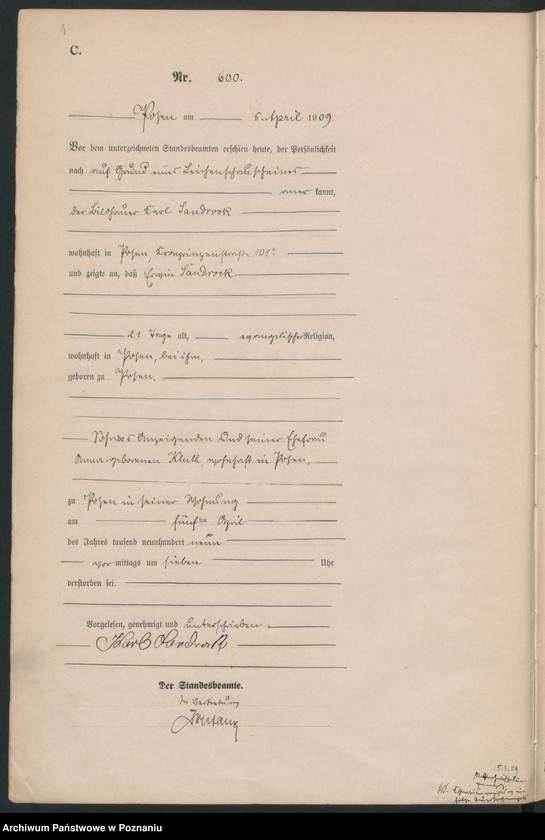 C.
Nr. 600.
Posen am 5. April 1909
Vor dem unterzeichneten Standesbeamten erschien heute, der Persönlichkeit
nach auf Grund eines Leichenschauscheines
aner kannt,
der Bildhauer Karl Sandrock
wohnhaft in Posen, Kronprinzenstraße 108a
und zeigte an, daß Erwin Sandrock
21 Tage alt, evangelischer Religion,
wohnhaft in Posen, bei ihm,
geboren zu Posen,
Sohn des Anzeigenden und seiner Ehefrau
Anna geborenen wohnhaft in Posen,
zu Posen in seiner Wohnung
am fünften April
des Jahres tausend neunhundert neun
vor mittags um sieben Uhr
verstorben sei.
Vorgelesen, genehmigt und unterschrieben
Karl Sandrock
Der Standesbeamte.
In Vertretung
Archiwum Państwowe w Poznaniu